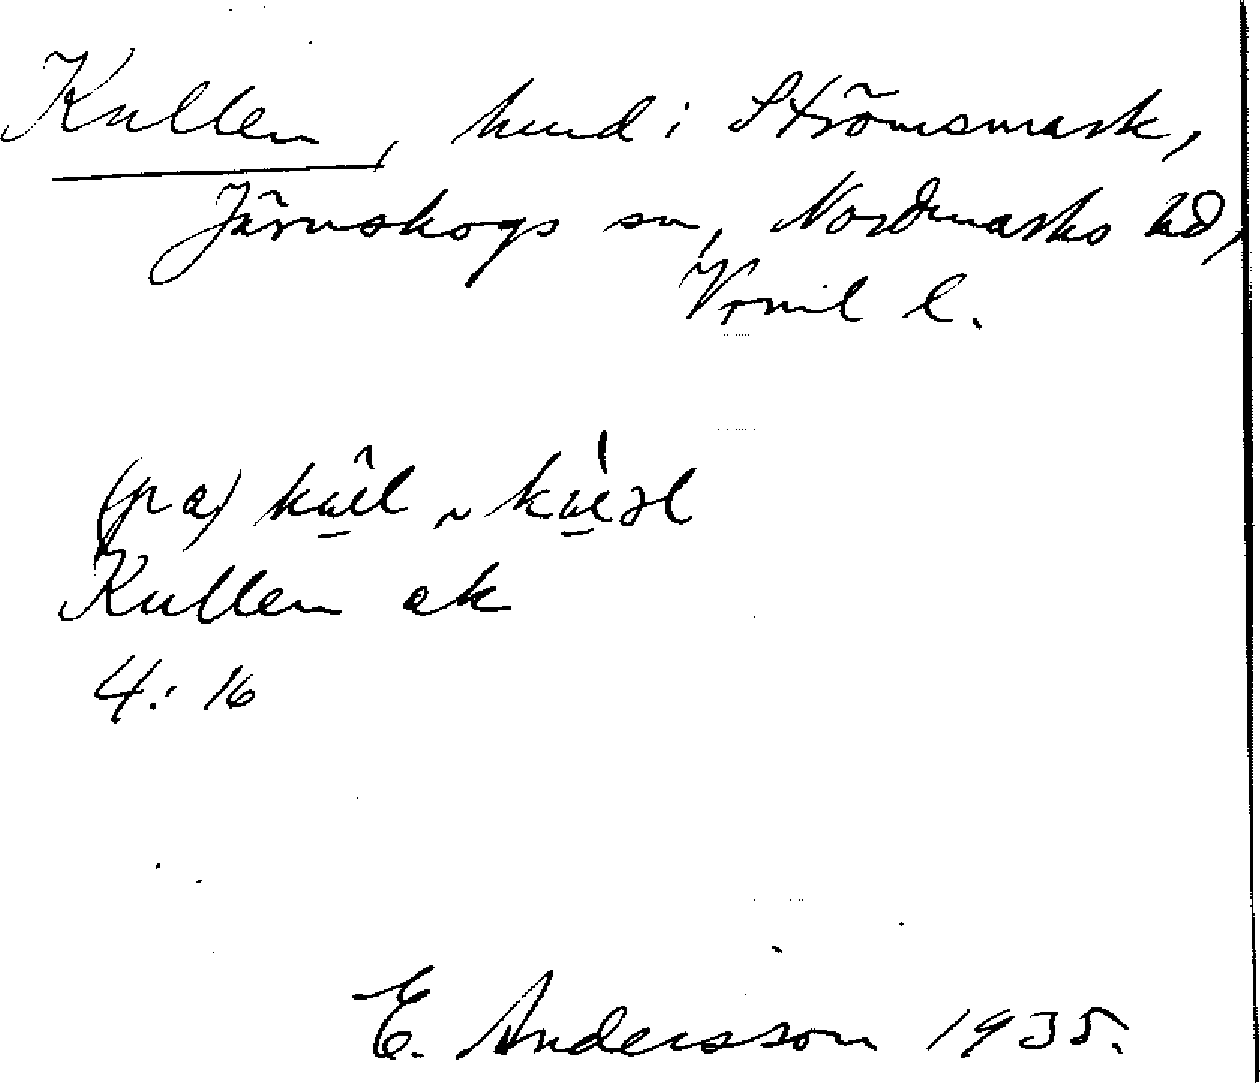 Kullen, hmd i Strömsmark,
Järnskogs sn, Nordmarks hd,
Vrml l.
(på) ~
Kullen ek
4:16
E. Andersson 1935.